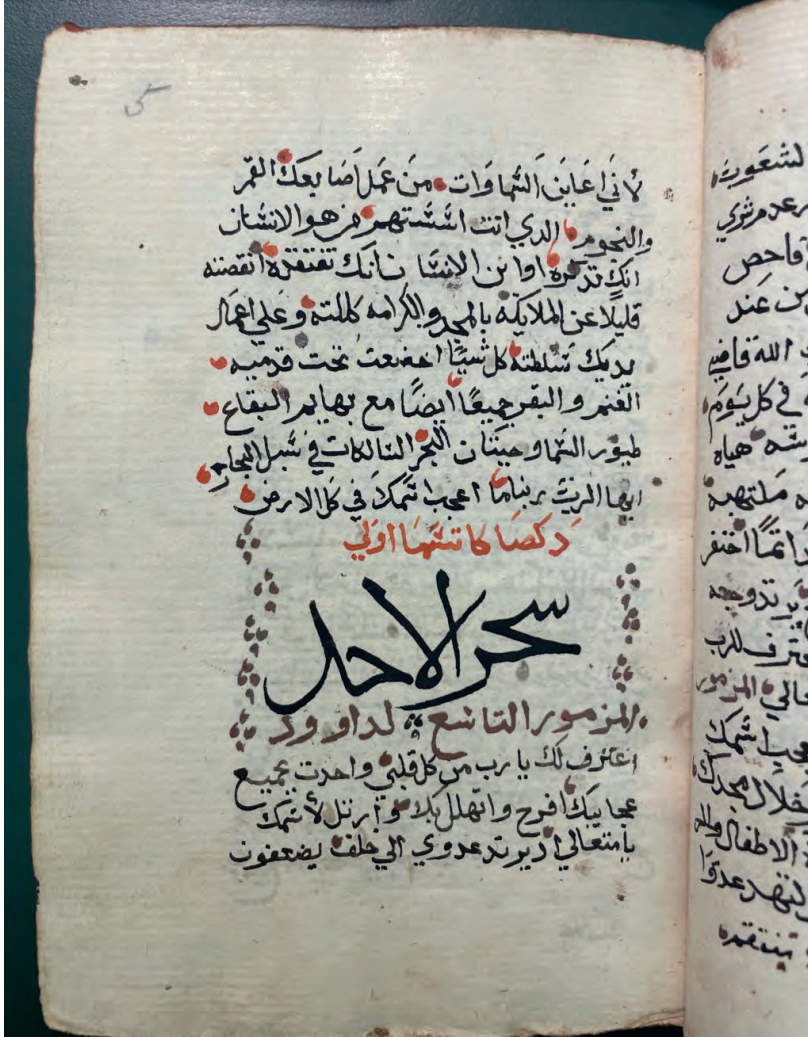 لاني اعاين السماوات من عمل اصابعك القمر
والنجوم الدي انت اسستهم من هو الانسان
انك تدكره اوابن الانسان انك تفتقده انقصته
قليلا عن الملايكه بالمجد والكرامه كللته وعلي اعمال
يديك سلطته كل شيا اخضعت تحت قدميه
الغنم والبقر جميعا ايضا مع بهايم البقاع
طيور السما وحيتان البحر السالكات في سبل البحار
ايها الرب ربنا ما اعجب اسمك في كل الارض
دكصا كاتسما اولي
سحر الاحد
المزمور التاسع لداوود
اعترف لك يا رب من كل قلبي واحدت بجميع
عجايبك افرح واتهلل بك وارتل لاسمك
يامتعالي اد يرتد عدوي الي خلف يضعفون
لشعوب
فاحص
من عند
الله
في كل يوم
هياه
ملتهبه
للرب
المزمور
اسمك
مجدك
الاطفال